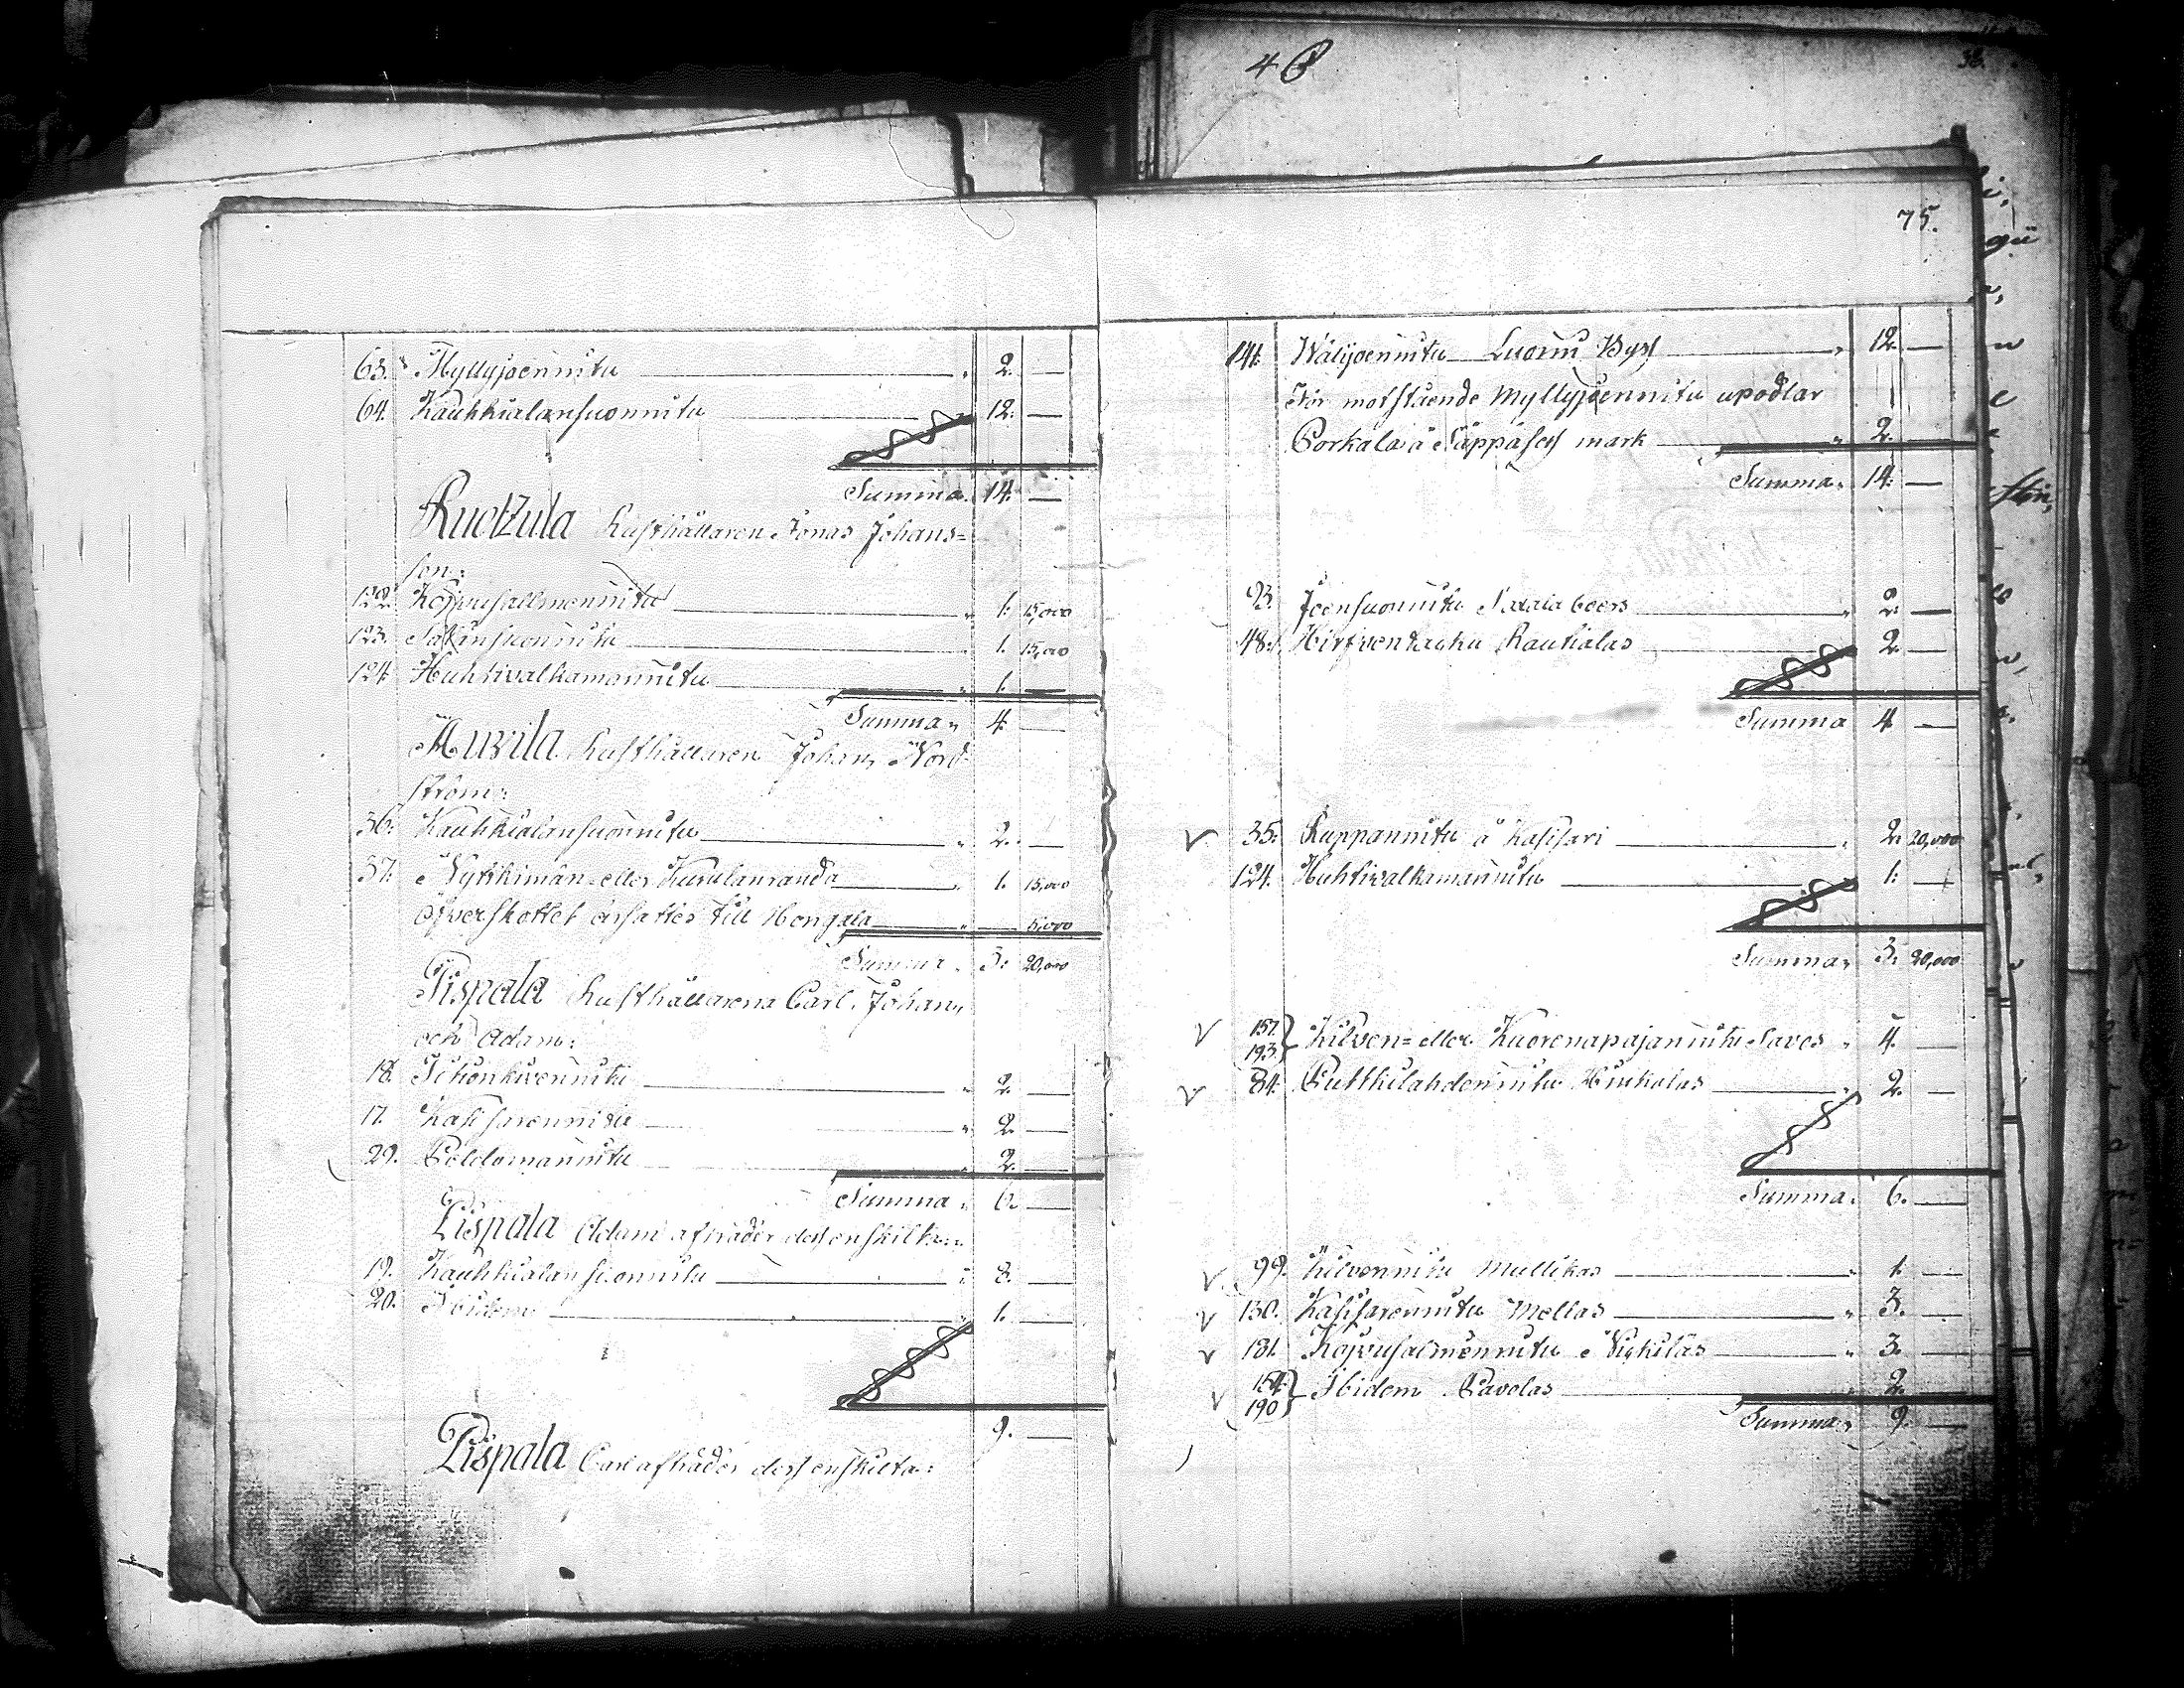 4
75.
63. Myllyjoennitu 2. —
64. Kauhkialansuonnitu 12. —
Summa 14. —
Rusthållaren Jonas Johans=
son:
122. Koivusallmennitu 1. 15,000
123. 1. 15,000
124. Huhtivalkamannitu 1. —
Summa 4. —
Anvila Rusthållaren Johan Nord=
ström:
36. Kauhkialansuonnitu 2. —
37. eller 1. 15,000
Öfverskottet ersättes till Hongala 5,000
Summa 3. 20,000
Pispala Rusthållarena Carl, Johan,
och Adam:
18. 2. —
17. Kasisarennitu 2. —
29. Peldomannitu 2. —
Summa 6. —
Pispala Adam afträder dess enskilta:
19. Kauhkialansuonnitu 8. —
20. Ibidem 1. —
9. —
Pispala Carl afträder dess enskilta:
141. Wälijoennitu Luomi Bys 12. —
För motstående Myllyjoennitu upodlar
Porkala å Säppäses mark 2. —
Summa 14. —
93. Joensuonnitu 2. —
48. Rauhalas 2. —
Summa 4. —
35. Ruppannitu å Kasisari 2. 20,000
124. Huhtivalkamannitu 1. —
Summa 3. 20,000
157. 193. Kilven= eller Kuorenapajannitu Saves 4. —
84. Putkilahdennitu 2. —
Summa 6. —
99. Kilvennitu Mullikas 1. —
130. Kasisarennitu Mellas 3. —
181. Koivusalmennitu 3. —
154. 190. Ibidem Pavolas 2. —
Summa 9. —